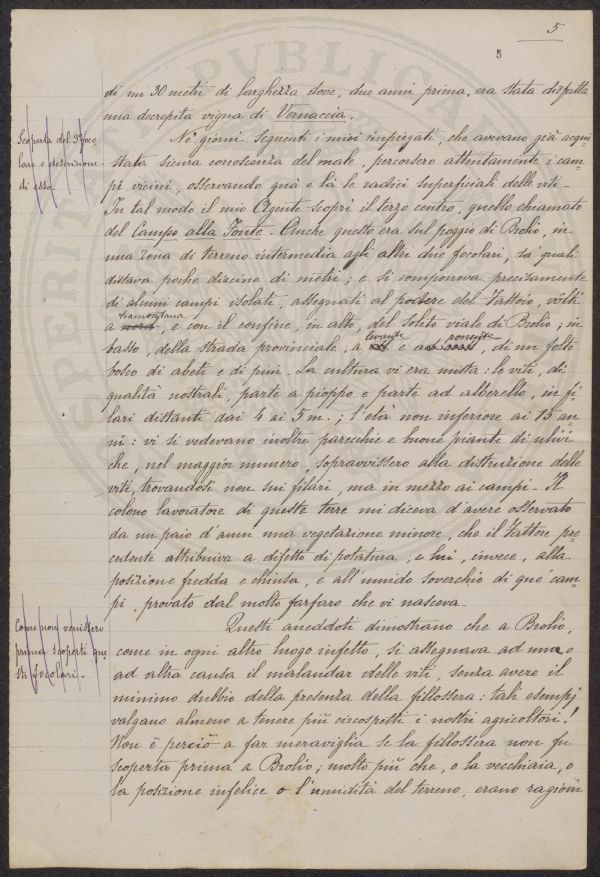 5
5
di un 30 metri di larghezza dove, due anni prima, era stata disfatta
una decrepita vigna di Vernaccia.
Scoperta del 3° foco
lare e descrizione
di esso.
Ne' giorni seguenti i miei impiegati, che avevano già acqui-
stata sicura conoscenza del male, percorsero attentamente i cam-
pi vicini, osservando quà e là le radici superficiali delle viti-
In tal modo il mio Agente scoprì il terzo centro, quello chiamato
del Campo alla Fonte- Anche questo era sul poggio di Brolio, in
una zona di terreno intermedia agli altri due focolari, da' quali
distava poche diecine di metri; e si componeva precisamente
di alcuni campi isolati, assegnati al podere del Fattoio, vòlti
tramontana
a nord, e con il confine, in alto, del solito viale di Brolio; in
levante ponente
basso, della strada provinciale; a e a, di un folto
bosco di abeti e di pini- La cultura vi era mista: le viti, di
qualità nostrali, parte a pioppo e parte ad alberello, in fi
lari distanti dai 4 ai 5 m.; l'età non inferiore ai 15 an
ni: vi si vedevano inoltre parecchie e buone piante di ulivi
che, nel maggior numero, sopravvissero alla distruzione delle
viti, trovandosi non sui filari, ma in mezzo ai campi- Il
colono lavoratore di queste terre mi diceva d'avere osservato
da un paio d'anni una vegetazione minore, che il Fattore pre
cedente attribuiva a difetto di potatura, e lui, invece, alla
posizione fredda e chiusa, e all'umido soverchio di que' cam
pi, provato dal molto farfaro che vi nasceva-
Come non venissero
prima scoperti que
sti focolari.-
Questi aneddoti dimostrano che a Brolio,
come in ogni altro luogo infetto, si assegnava ad una o
ad altra causa il malandar delle viti, senza avere il
minimo dubbio della presenza della fillossera: tali esempi
valgano almeno a tenere più circospetti i nostri agricoltori!
Non è perciò a far meraviglia se la fillossera non fu
scoperta prima a Brolio; molto più che, o la vecchiaia, o
la posizione infelice o l'umidità del terreno, erano ragioni